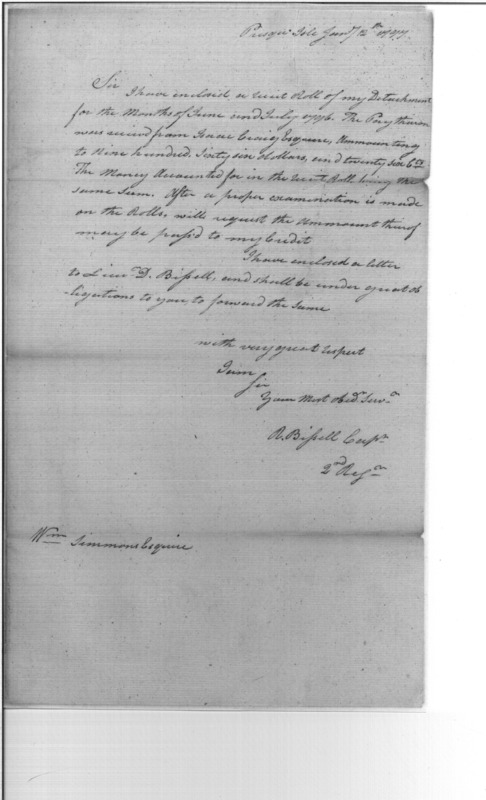 Presqu Isle Jany 12th 1797.
Sir
I have enclosed a Receit Roll of my Detachment
for the Months of June and July 1796. The Pay thereon
was received from Isaac Craig Esquire, Ammounting
to Nine hundred, Sixty six dollars, and twenty six Cts
The Money Accounted for in the Receit Roll being the
same Sum. After a proper examination is made
on the Rolls, will request the Ammount thereof
may be passd to my Credit
I have enclosed a letter
to Lieut D. Bissell, and shall be under great ob
ligations to you, to forward the same
with very great respect
I am
Sir
Your Most Obdt Servt
R. Bissell Capt
2nd Regt
Wm Simmons Esquire